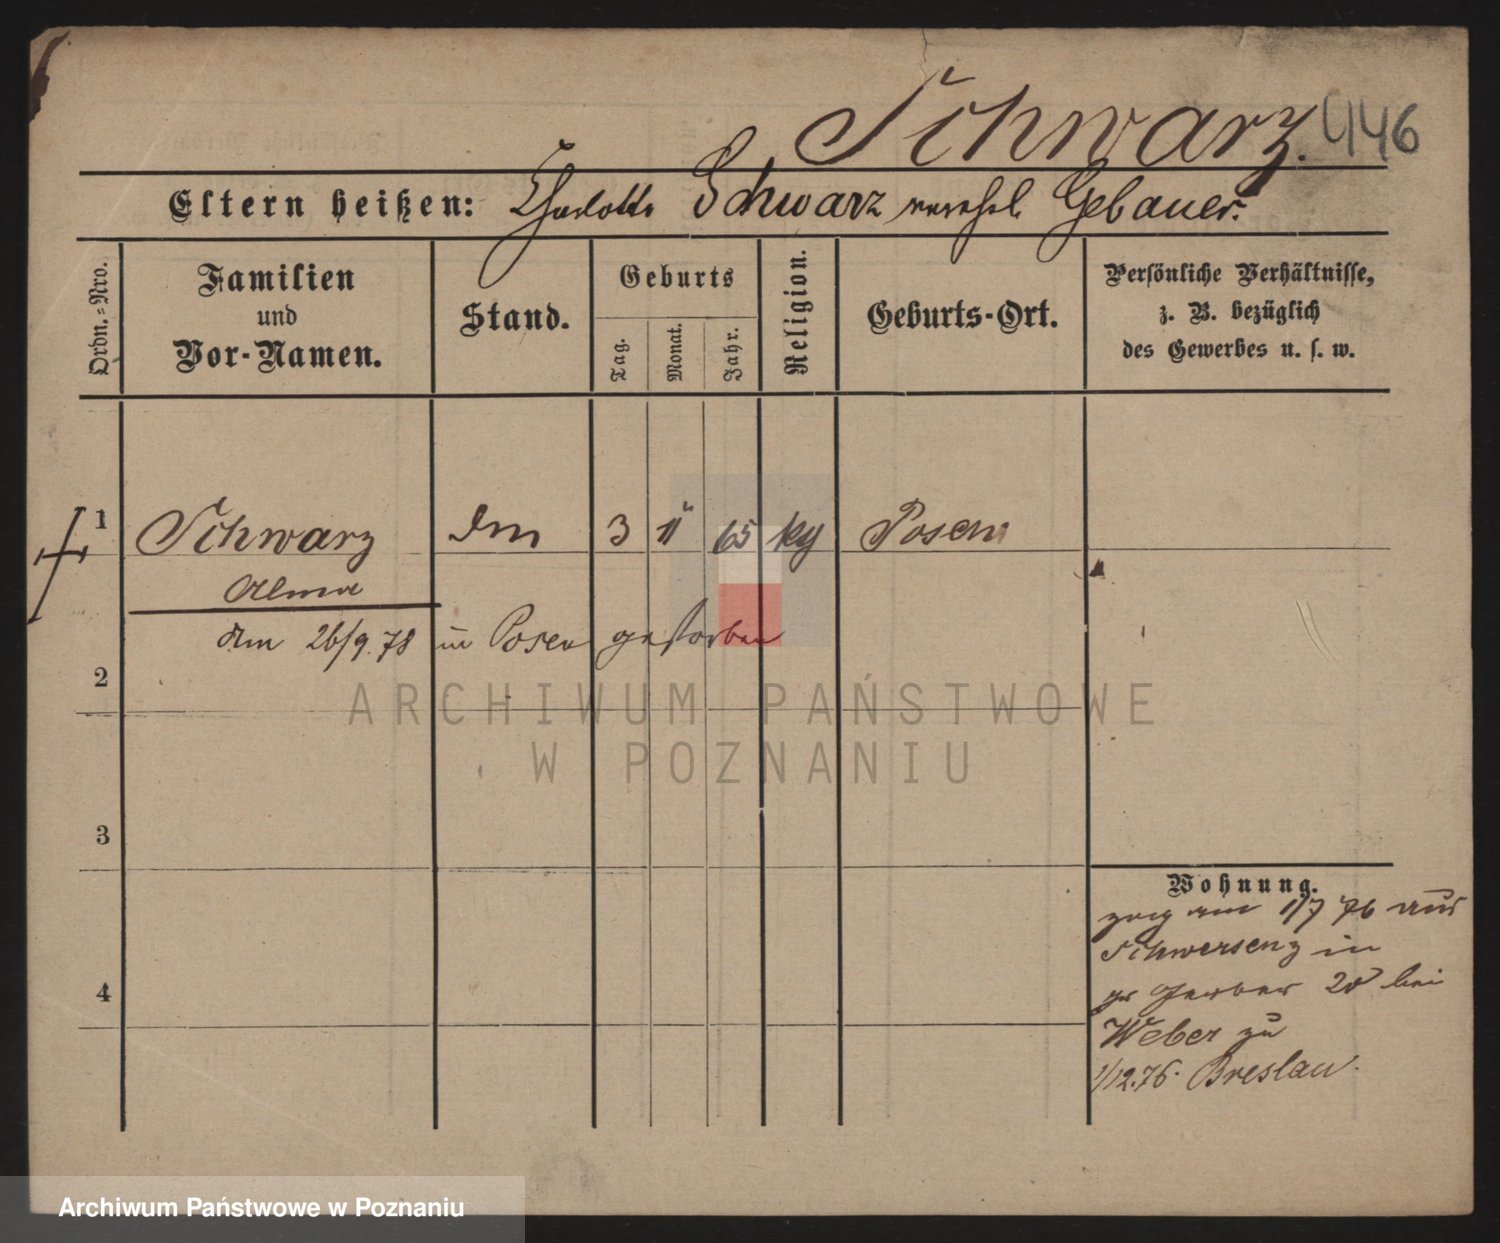 Schwarz. 446
Eltern heißen: Charlotte Schwarz verehel. Gebauer.
Ordn.-Nro.
Familien
und
Vor-Namen.
Stand.
Geburts
Tag.
Monat.
Jahr.
Religion.
Geburts-Ort.
Persönliche Verhältnisse,
z. B. bezüglich
des Gewerbes u. s. w.
1 Schwarz 3 11 65 Posen
Alma
am 26/9. 78 in Posen gestorben
2
ARCHIWUM PAŃSTWOWE
W POZNANIU
3
4
Wohnung.
zog am 1/7 76 aus
Schwersenz in
gr Gerber 20 bei
Weber zu
1/12.76. Breslau.
Archiwum Państwowe w Poznaniu